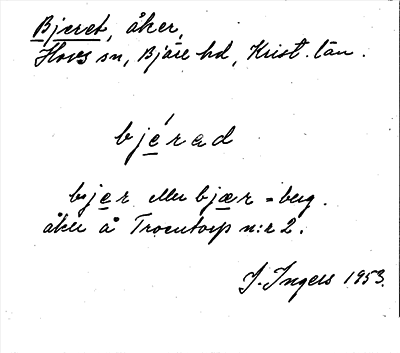 Bjæret, åker,
Hovs sn, Bjäre hd, Krist. län.
bjérad
bjer eller bjær = berg.
åker å Trocutorp n:r 2.
I. Ingers 1953.